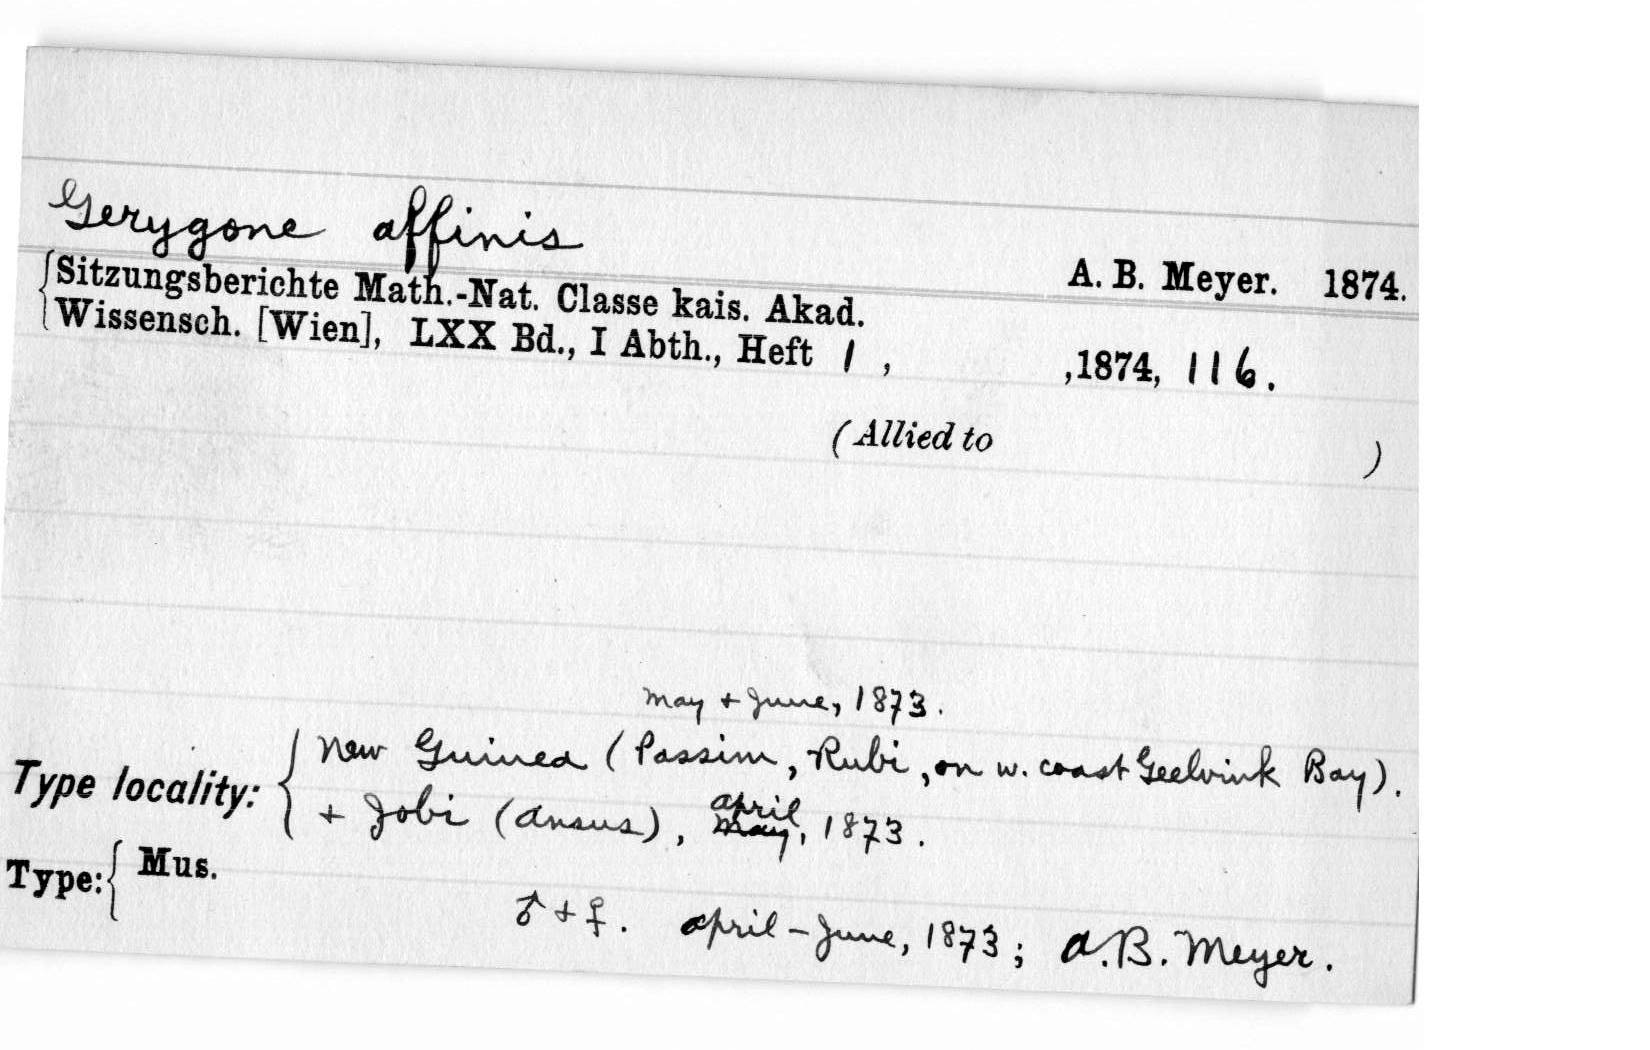 Gerygone affinis
A. B. Meyer. 1874.
{Sitzungsberichte Math.-Nat. Classe kais. Akad.
Wissensch. [Wien], LXX Bd., I Abth., Heft 1, ,1874, 116.
(Allied to )
May + June, 1873.
Type locality: { New Guinea (Passim, Rubi, on w. coast Geelvink Bay).
+ Jobi (Ansus), April May, 1873.
Type: { Mus.
♂ + ♀. April – June, 1873; A.B. Meyer.